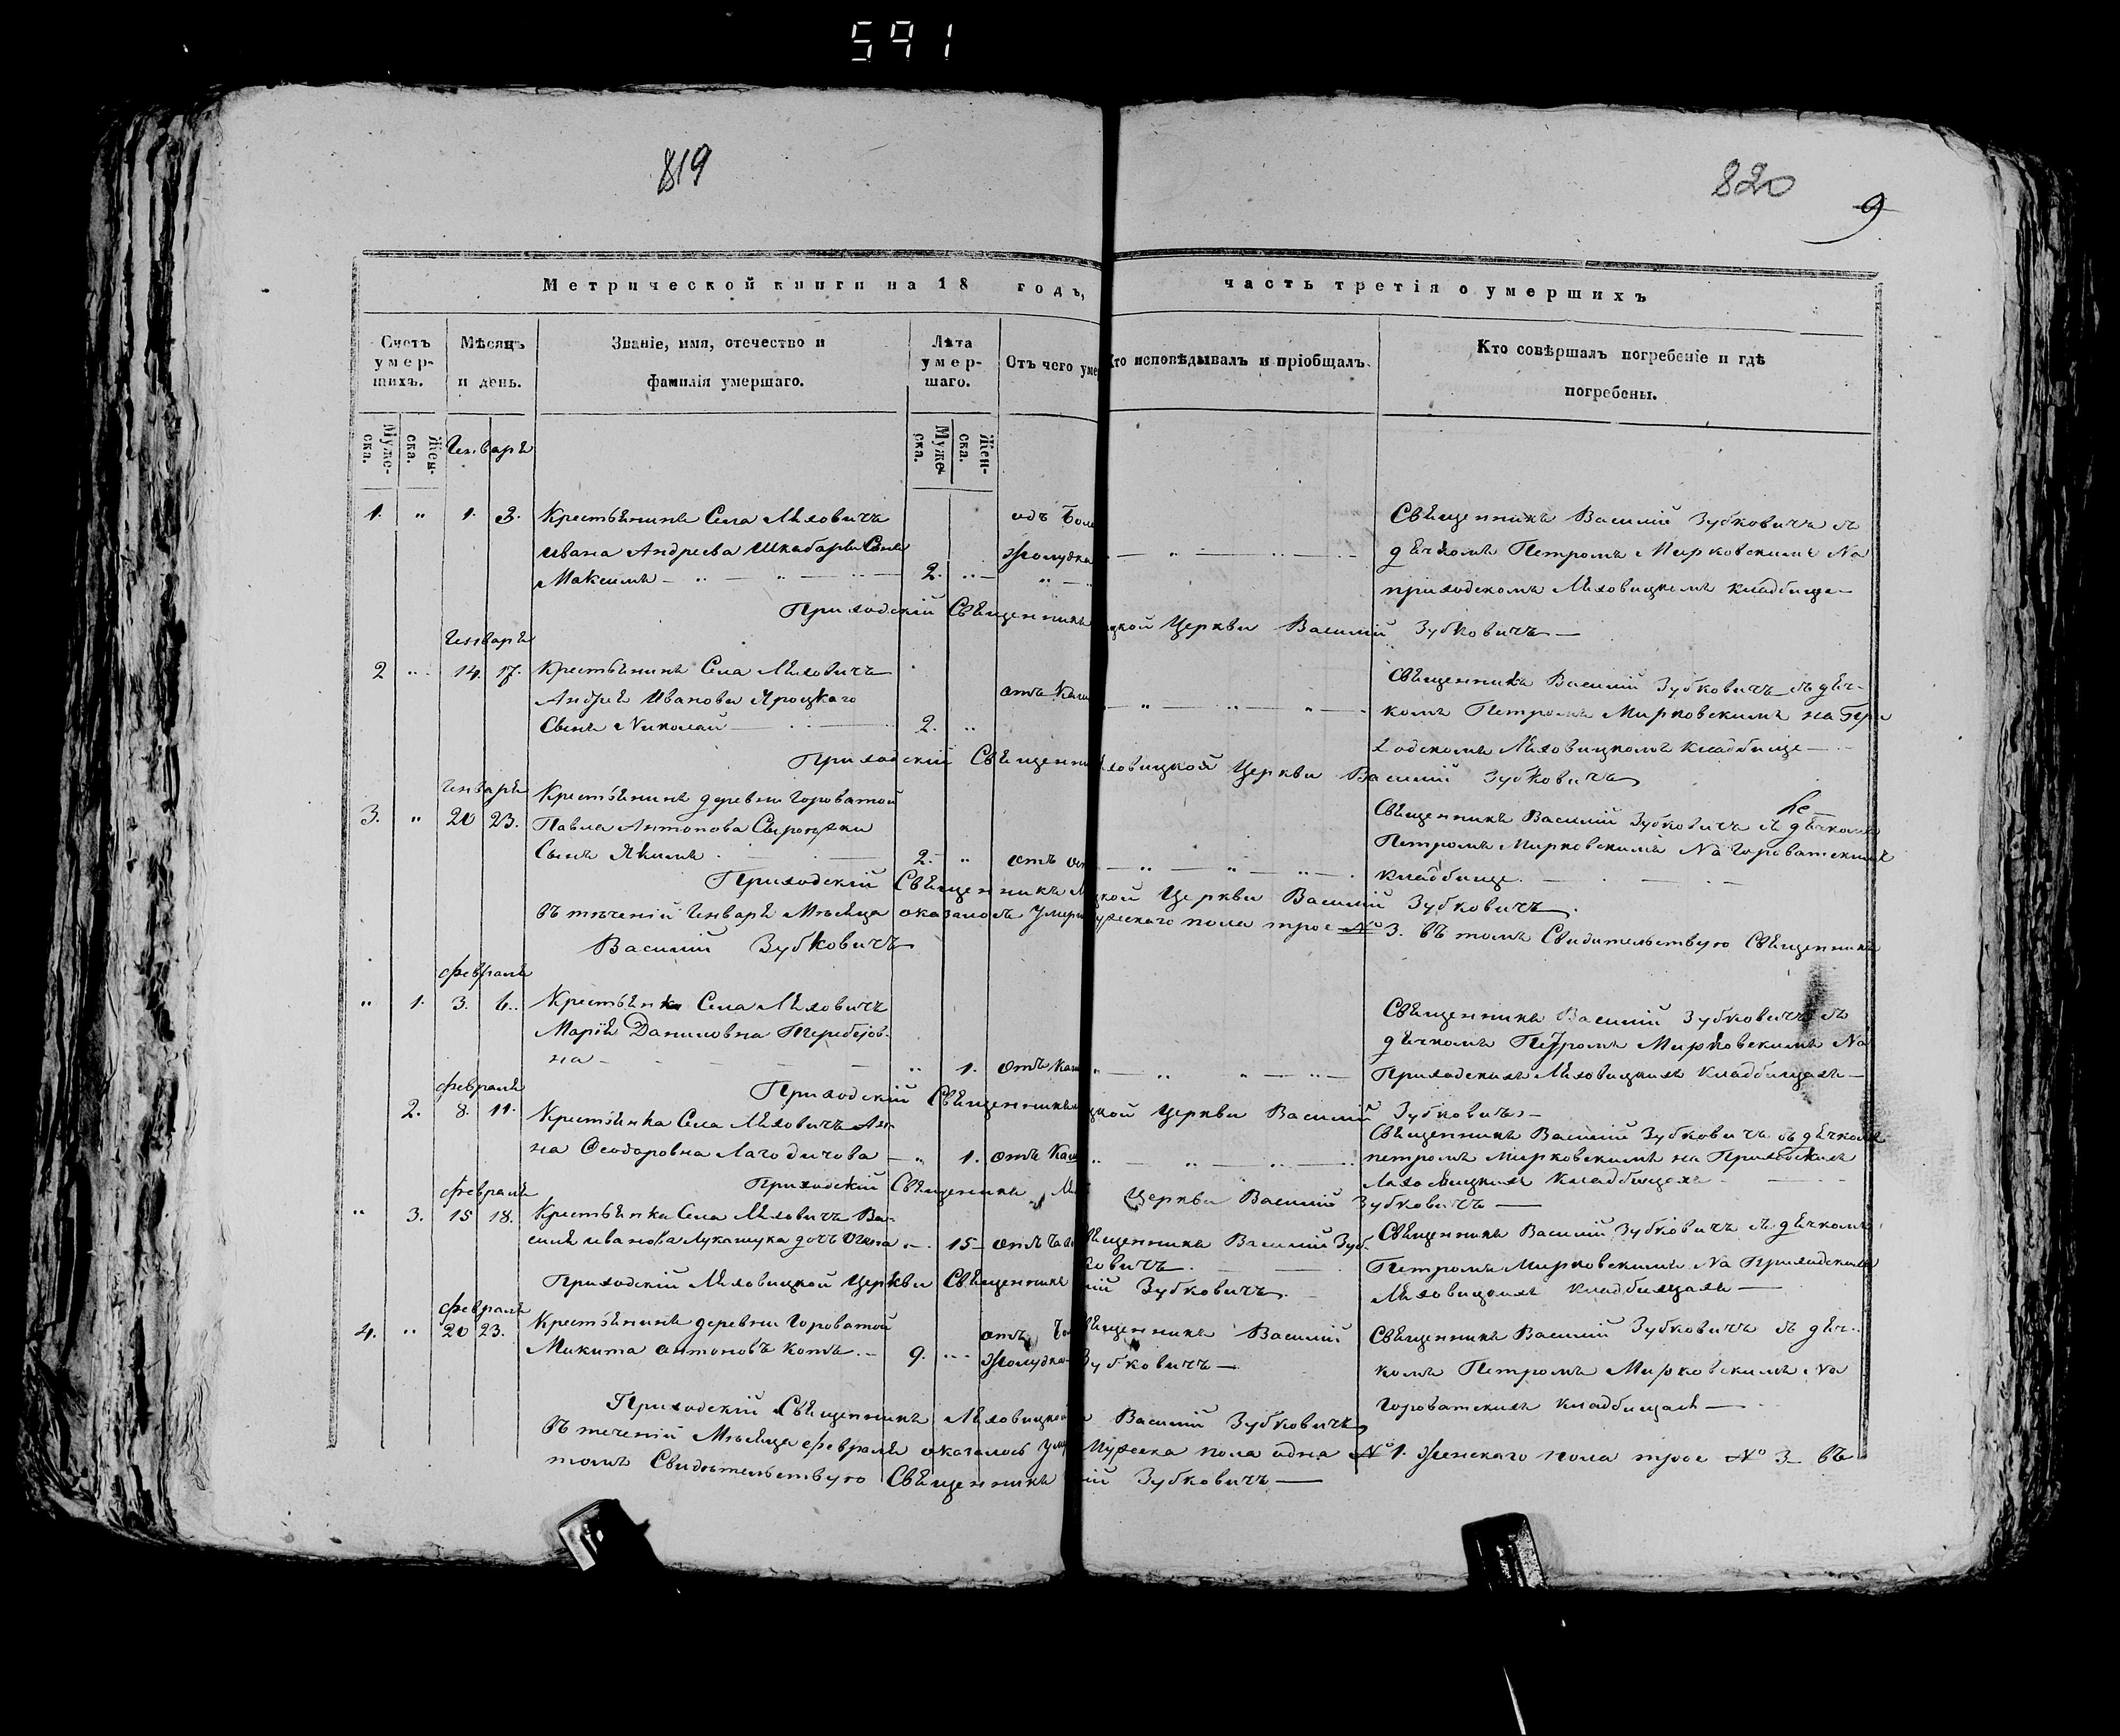 591
819
820
9
Метрической книги на 18 годъ, часть третія о умершихъ
Счетъ умер-шихъ.
Мѣсяцъ и день.
Званіе, имя, отечество и фамилія умершаго.
Лѣта умер-шаго.
Отъ чего уме
Кто исповѣдывалъ и пріобщалъ.
Кто совѣршалъ погребеніе и гдѣ погребены.
Муже-ска.
Жен-ска.
Муже-ска.
Жен-ска.
Генварѣ
1. " 1. 3. Крестьянинъ Села Ляховичъ
Ивана Андреева Сынъ
Максимъ 2.
одъ Боле
Жолудка
Священникъ Василій Зубковичъ съ
дячкомъ Петромъ Мирковскимъ на
приходскомъ Ляховицкомъ кладбище
Приходскій Священникъ цкой Церкви Василій Зубковичъ
Генваря
2 " 14. 17. Крестьянинъ Села Ляховичъ
Андрея Иванова Яроцкаго
Сынъ Николай 2. "
отъ Каш
Священникъ Василій Зубковичъ съ дяч-
комъ Петромъ Мирковскимъ на При
ходскомъ Ляховицкомъ кладбище
Приходскій Священни яховицкой Церкви Василій Зубковичъ
Генваря
3. " 20 23. Крестьянинъ деревни Гороватой
Павла Антонова
Сынъ Якимъ 2. "
отъ
Священникъ Василій Зубковичъ съ дячкомъ
Петромъ Мирковскимъ на Гороватскимъ
кладбище.
Приходскій Священникъ цкой Церкви Василій Зубковичъ.
въ теченій Генваря Мѣсяца оказалось Умер ужескаго пола трое № 3. въ томъ Свидительствую Священникъ
Василій Зубковичъ
Февраля
" 1. 3. 6. Крестьянка Села Ляховичъ
Марія Даниловна
на " 1. отъ каш
Священникъ Василій Зубковичъ съ
дячкомъ Петромъ Мирковскимъ на
Приходскихъ Ляховицкихъ кладбищахъ
Февраля
Приходскій Священникъ цкой Церкви Василій Зубковичъ
2. 8. 11. Крестьянка Села Ляховичъ Ан-
на Ѳеодоровна Лагодичова " 1. отъ Каш
Священникъ Василій Зубковичъ съ дячкомъ
петромъ Мирковскимъ на Приходскихъ
Ляховицкихъ Кладбищахъ
Приходскій Священникъ Ля Церкви Василій Зубковичъ
Февраля
" 3. 15 18. Крестьянка Села Ляховичъ Ва-
силя Иванова Лукашука дочъ 15
Священникъ Василій Зуб-
ковичъ.
Священникъ Василій Зубковичъ съ дячкомъ
Петромъ Мирковскимъ на Приходскихъ
Ляховицкихъ кладбищахъ
Приходскій Ляховицкой Церкви Священникъ лій Зубковичъ.
Февраля
4. " 20 23. Крестьянинъ деревни Гороватой
Микита Антоновъ Котъ 9.
отъ
Жолудка
Священникъ Василій
Зубковичъ
Священникъ Василій Зубковичъ съ дяч-
комъ Петромъ Мирковскимъ на
Гороватскихъ кладбищахъ
Приходскій Священникъ Ляховицкой Василій Зубковичъ
Въ теченій Мѣсяца Февраля оказалось Уме Мужска пола одна № 1. Женскаго пола трое № 3 въ
томъ Свидѣтельствую Священникъ лій Зубковичъ